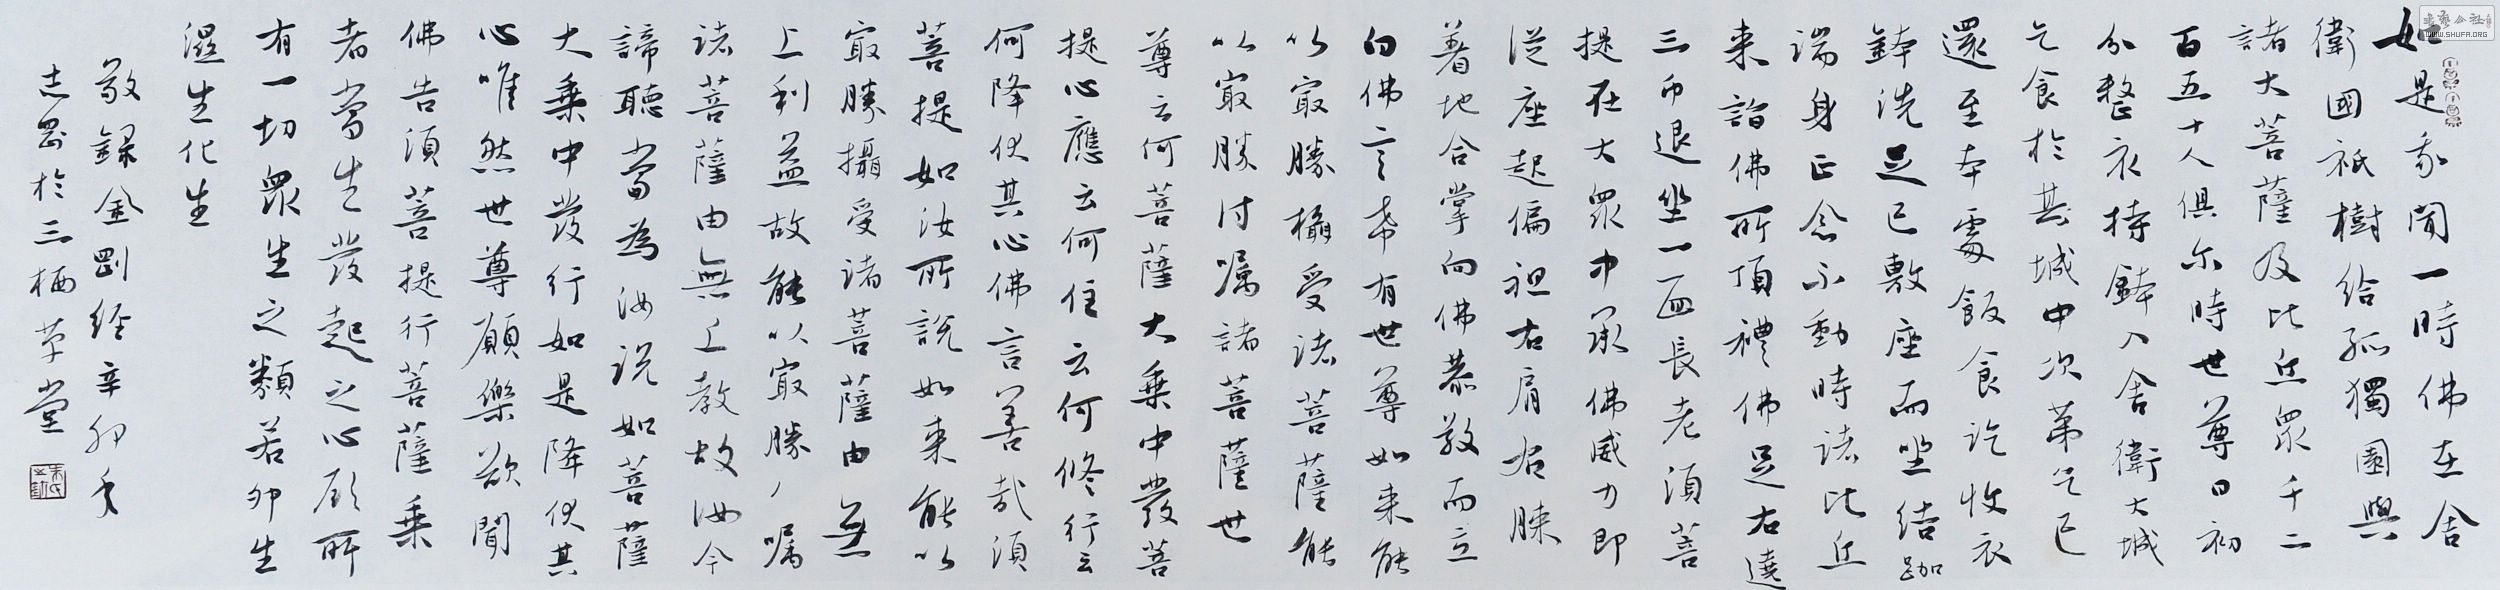 如是我聞一時佛在舍
衛國祇樹給孤獨園與
諸大菩薩及比丘眾千二
百五十人俱尔時世尊日初
分整衣持鉢入舍衛大城
乞食於其城中次第乞已
還至本處飯食訖收衣
鉢洗足已敷座而坐結跏
端身正念不動時諸比丘
来詣佛所頂禮佛足右遶
三帀退坐一面長老須菩
提在大眾中承佛威力即
從座起偏袒右肩右膝
着地合掌向佛恭敬而立
白佛言希有世尊如来能
以冣勝攝受諸菩薩能
以冣勝付嘱諸菩薩世
尊云何菩薩大乗中發菩
提心應云何住云何修行云
何降伏其心佛言善哉須
菩提如汝所說如来能以
冣勝攝受諸菩薩由無
上利益故能以冣勝付嘱
諸菩薩由無上教故汝今
諦聽當為汝说如菩薩
大乗中發行如是降伏其
心唯然世尊願樂欲聞
佛告須菩提行菩薩乗
者當生發起之心所
有一切眾生之類若卵生
濕生化生
敬録金剛经辛卯年
志罡於三栖草堂
WWW.SHUFA.ORG